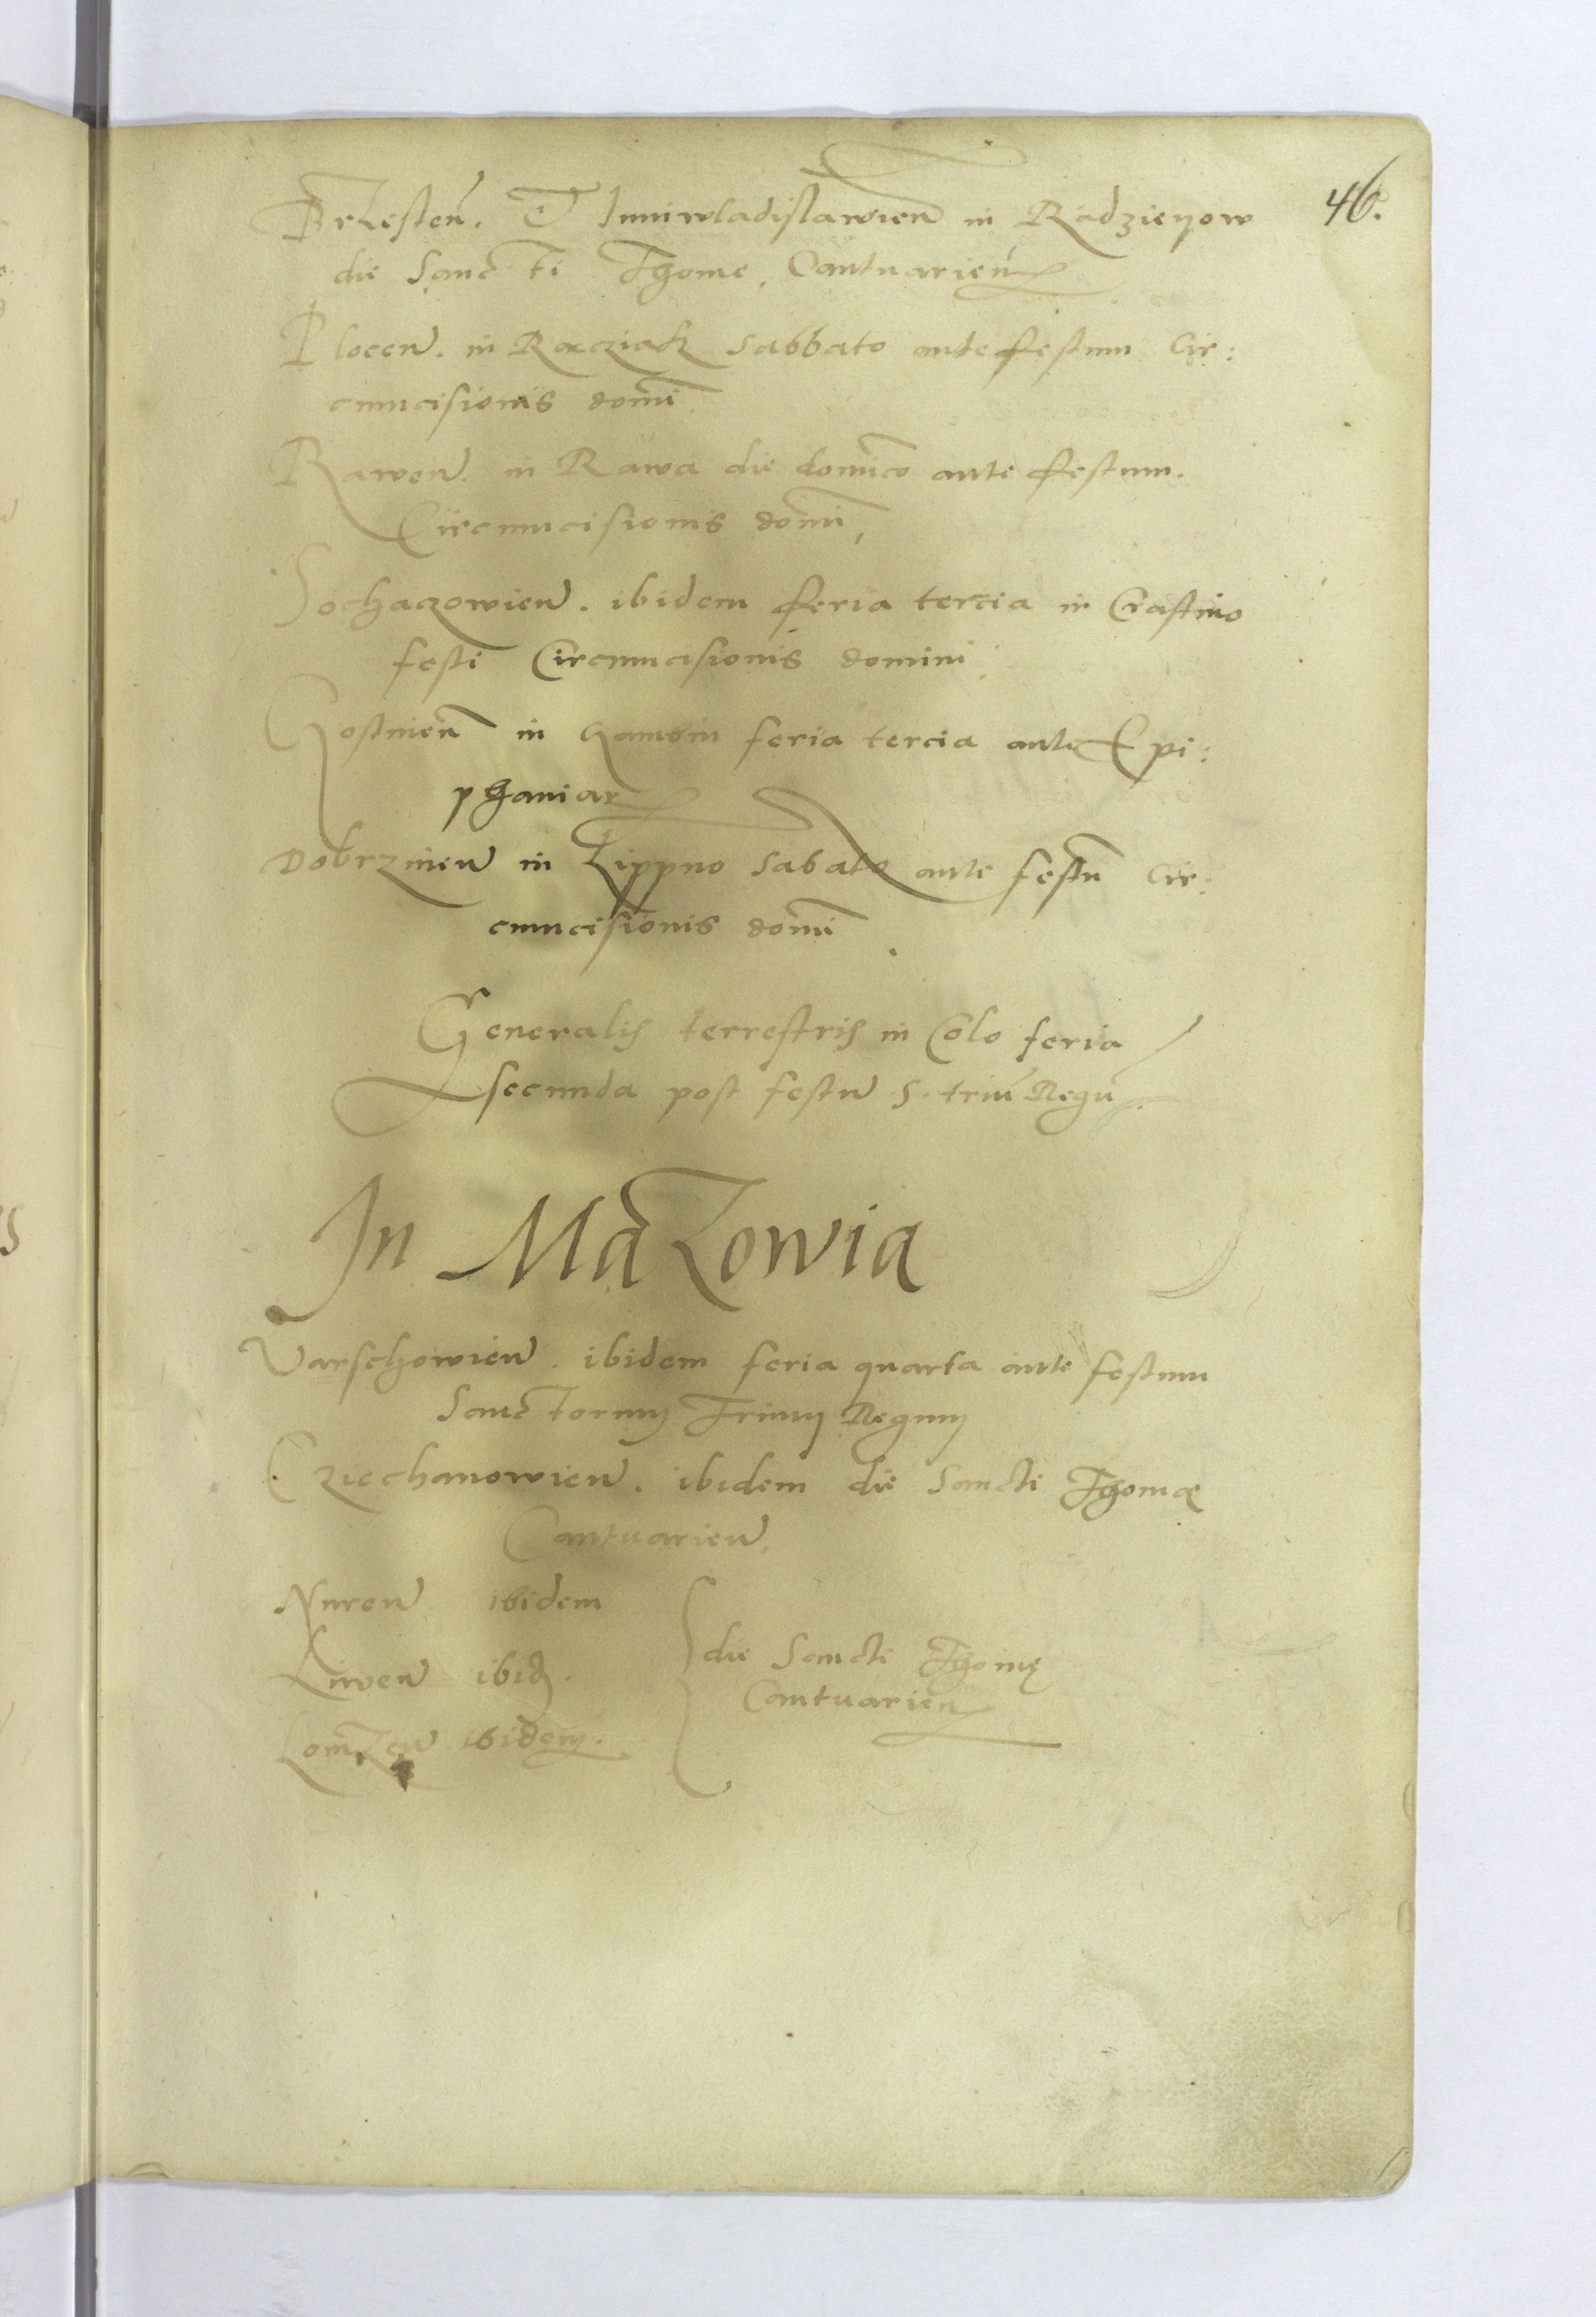 46.
Brzesten. et Inniwladislawien in Radzieyow
die Sancti Thome, Cantuarien
Plocen. in Racziacz Sabbato ante festum Cir:
cumcisionis domi
Rawen. in Rawa die domico ante festum.
Circumcisionis domi,
Sochaczowien. ibidem feria tercia in Crastino
festi Circumcisionis domini
Gostinen in Gambin feria tercia ante Epi:
phaniar
Dobrzinen in Lippno Sabato ante festu Cir:
cumcisionis domi
Generalis terrestris in Colo feria
secunda post festu S. triu Regu
In Mazowia
Varschowien. ibidem feria quarta ante festum
Sanctorum Trium Regum
Cziechanowien. ibidem die Sancti Thomæ
Cantuarien,
Nuren ibidem
Liwen ibid.
Lomzen ibidem.
die Sancti Thomę
Cantuarien